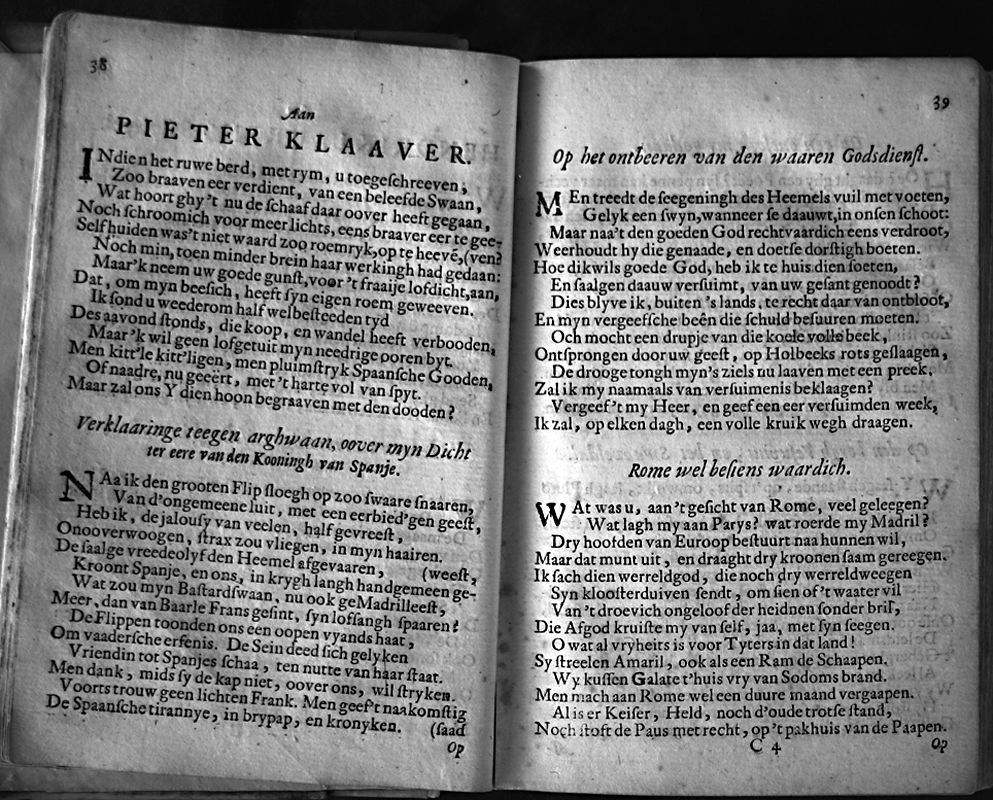 38
Aan
PIETER KLAAVER.
INdien het ruwe berd, met rym, u toegeſchreeven,
Zoo braaven eer verdient, van een beleefde Swaan,
Wat hoort ghy't nu de ſchaaf daar oover heeft gegaan,
Noch ſchroomich voor meer lichts, eens braaver eer te gee-
Selfhuiden was't niet waard zoo roemryk, op te heevē, (ven?
Noch min, toen minder brein haar werkingh had gedaan:
Maar'k neem uw goede gunſt, voor 't fraaije lofdicht, aan,
Dat, om myn beeſich, heeft ſyn eigen roem geweeven.
Ik ſond u weederom half welbeſteeden tyd
Des aavond ſtonds, die koop, en wandel heeft verbooden,
Maar 'k wil geen lofgetuit myn needrige poren byt.
Men kitt'le kitt'ligen, men pluimſtryk Spaanſche Gooden,
Of naadre, nu geeërt, met 't harte vol van ſpyt.
Maar zal ons Y dien hoon begraaven met den dooden?
Verklaaringe teegen arghwaan, oover myn Dicht
ter eere van den Kooningh van Spanje.
NAa ik den grooten Flip ſloegh op zoo ſwaare ſnaaren,
Van d'ongemeene luit, met een eerbied'gen geeſt,
Heb ik, de jalouſy van veelen, half gevreeſt,
Onooverwoogen, ſtrax zou vliegen, in myn haairen.
De ſaalge vreedeolyf den Heemel afgevaaren, (weeſt,
Kroont Spanje, en ons, in krygh langh handgemeen ge-
Wat zou myn Baſtardſwaan, nu ook geMadrilleeſt,
Meer, dan van Baarle Frans geſint, ſyn lofſangh ſpaaren?
De Flippen toonden ons een oopen vyands haat,
Om vaaderſche erfenis. De Sein deed ſich gelyken
Vriendin tot Spanjes ſchaa, ten nutte van haar ſtaat.
Men dank, mids ſy de kap niet, oover ons, wil ſtryken.
Voorts trouw geen lichten Frank. Men geeft naakomſtig
De Spaanſche tirannye, in brypap, en kronyken. (ſaad
Op
39
Op het ontbeeren van den waaren Godsdienſt.
MEn treedt de ſeegeningh des Heemels vuil met voeten,
Gelyk een ſwyn, wanneer ſe daauwt, in onſen ſchoot:
Maar naa't den goeden God rechtvaardich eens verdroot,
Weerhoudt hy die genaade, en doetſe dorſtigh boeten.
Hoe dikwils goede God, heb ik te huis dien ſoeten,
En ſaalgen daauw verſuimt, van uw geſant genoodt?
Dies blyve ik, buiten 's lands, te recht daar van ontbloot,
En myn vergeefſche beên die ſchuld beſuuren moeten.
Och mocht een drupje van die koele volle beek,
Ontſprongen door uw geeſt, op Holbeeks rots geſlaagen,
De drooge tongh myn's ziels nu laaven met een preek.
Zal ik my naamals van verſuimenis beklaagen?
Vergeef't my Heer, en geef een eer verſuimden week,
Ik zal, op elken dagh, een volle kruik wegh draagen.
Rome wel beſiens waardich.
WAt was u, aan't geſicht van Rome, veel geleegen?
Wat lagh my aan Parys? wat roerde my Madril?
Dry hoofden van Euroop beſtuurt naa hunnen wil,
Maar dat munt uit, en draaght dry kroonen ſaam gereegen.
Ik ſach dien werreldgod, die noch dry werreldweegen
Syn klooſterduiven ſendt, om ſien of't waater vil
Van 't droevich ongeloof der heidnen ſonder bril,
Die Afgod kruiſte my van ſelf, jaa, met ſyn ſeegen.
O wat al vryheits is voor Tyters in dat land!
Sy ſtreelen Amaril, ook als een Ram de Schaapen.
Wy kuſſen Galate t'huis vry van Sodoms brand.
Men mach aan Rome wel een duure maand vergaapen.
Al is er Keiſer, Held, noch d'oude trotſe ſtand,
Noch ſtoft de Paus met recht, op 't pakhuis van de Paapen.
C 4
Op